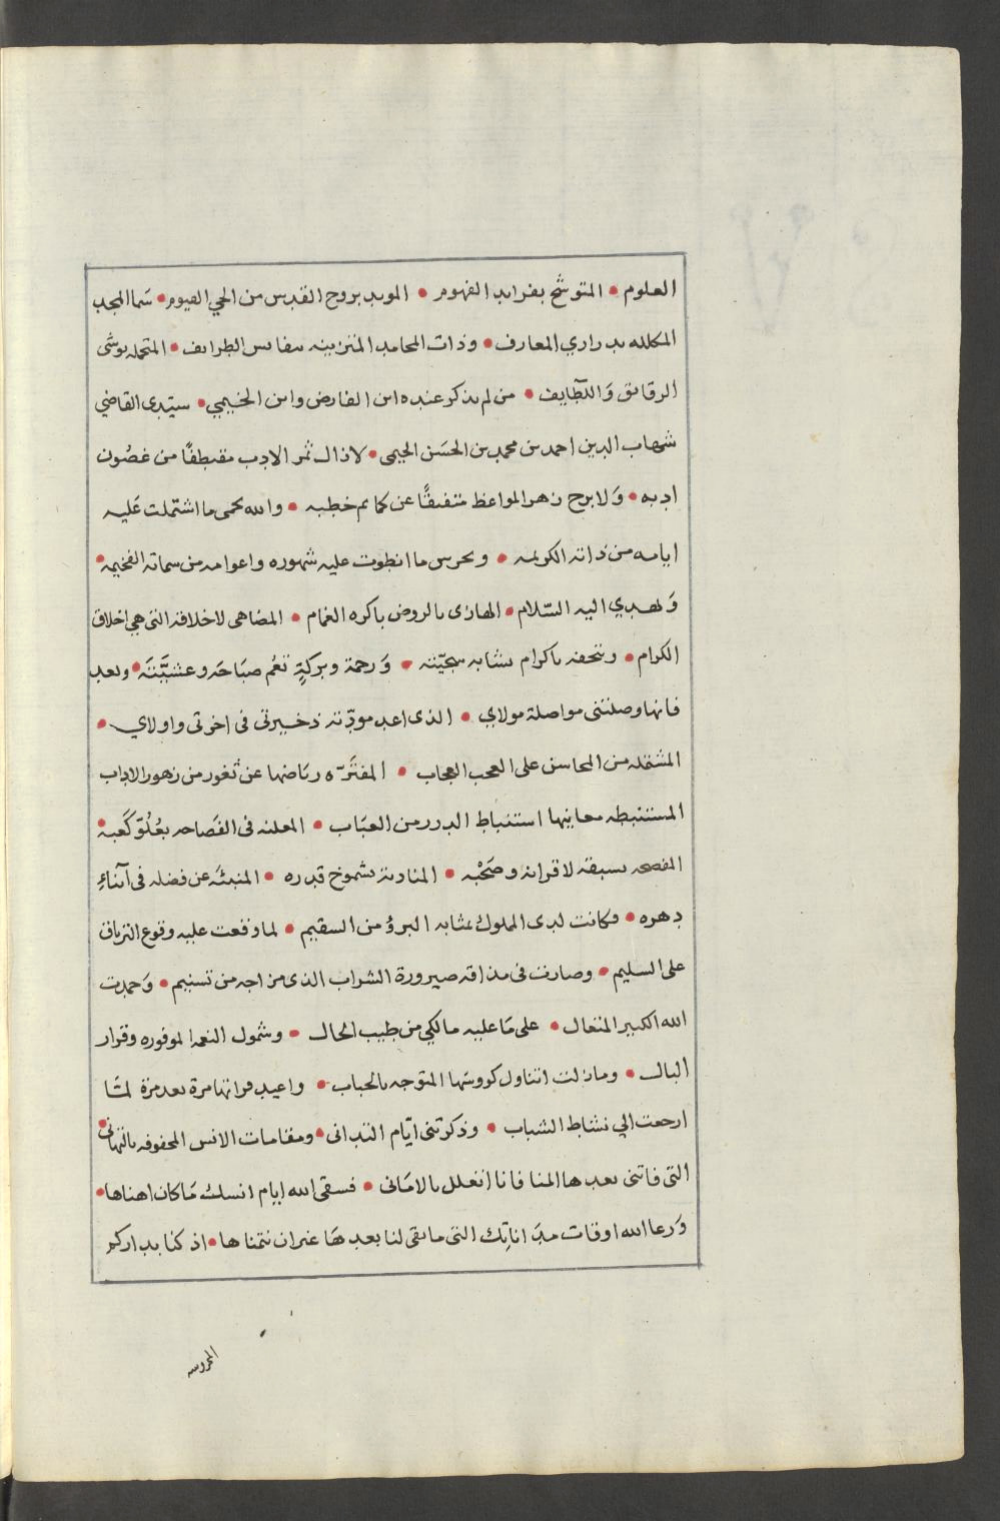 العلوم • المتوشح بفرايد الفهوم • المويد بروح القدس من الحي القيوم • سما المجد
المكلله بدراري المعارف • وذات المحامد المتزينه بنفايس الطرايف • المتحمله بوشي
الرقايق وَاللّطايف • من لم يذكر عنده ابن الفارض وابن الخيمي • سيّدى القاضي
شهاب الدين احمد بن محمد بن الحسَن الحيمى • لازال ثمر الادب مقتطفًا من غصُون
ادبه • وَلا برح زهر المواعظ متفتقًا عن كمايم خطبه • والله يحمى ما اشتملت عَليه
ايامه من ذاته الكريمه • ويحرس ما انطوت عليه شهوره واعوامه من سماته الفخيمه •
وَيهدي اليه السّلام • الهازى بالروض باكره الغمام • المضاهى لاخلاقه التى هي اخلاق
الكرام • ويتحفه باكرام يشابه سجيّته • وَرحمة وبركةٍ تعُم صبَاحَه وعشيَّتَه • وبعد
فانها وصلتنى مواصلة مولاي • الذى اعد مودّته ذخيرتى فى اخرتى واولاي •
المشتمله من المحاسن على العجب العجاب • المفتَرّه رياضها عن ثغور من زهور الاداب
المستنبطه معانيها استنباط الدرر من العبَاب • المعلنه فى الفَصَاحه بعُلُوّ كَعبه •
المفصحه بسبقه لاقرانه وصَحْبه • المناديه بشموخ قدره • المنبئَه عن فضله فى آناءِ
دهره • فكانت لدى المملوك بمثابه البرؤ من السقيم • لما وقعت عليه وقوع الترياق
على السليم • وصارت فى مذاقه صيرورة الشراب الذى مزاجه من تسنيم • وَحمدت
الله الكبير المتعال • على مَا عليه مالكي من طيب الحال • وشمول النعم الموفوره وقرار
البال • ومازلت اتناول كووسَها المتوجه بالحباب • واعيد قراتها مرة بعد مرة لمّا
ارجعت الي نشاط الشباب • وذكرتنى ايّام التدانى • ومقامات الانس المحفوفه بالتهانى •
التى فاتنى بعدها المنا فانا اتعلل بالامَانى • فسقى الله ايام انسك مَا كان اهناها •
وَرعا الله اوقات مدَاناتِك التى ما بقى لنا بعدهَا غير ان نتمناها • اذ كنا بداركم
المحروسه